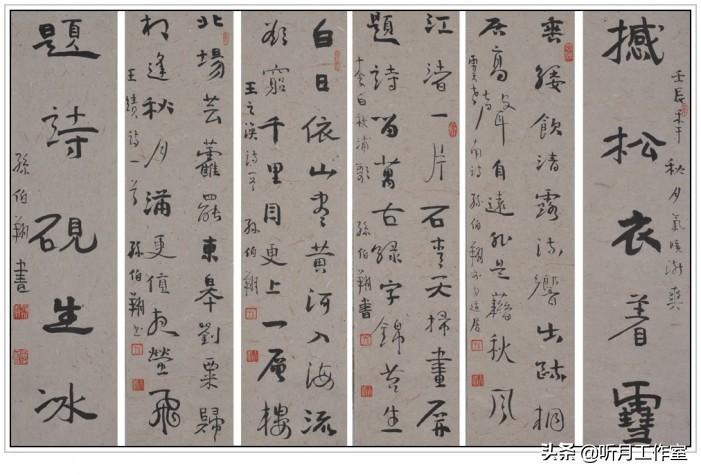 撼松衣着雪
秋月
垂緌飲清露流響出疏桐
居高聲自遠非是藉秋風
孫伯翔
江渚一片石青天掃畫屏
題詩留萬古綠字錦苔生
白秋浦歌 孫伯翔書
白日依山盡黃河入海流
欲窮千里目更上一層樓
王之渙詩一首 孫伯翔
北場芸藿罷東皋刈粟歸
相逢秋月滿更值夜螢飛
王績詩一首 孫伯翔書
題詩硯生冰
孫伯翔書
头条 @听月工作室